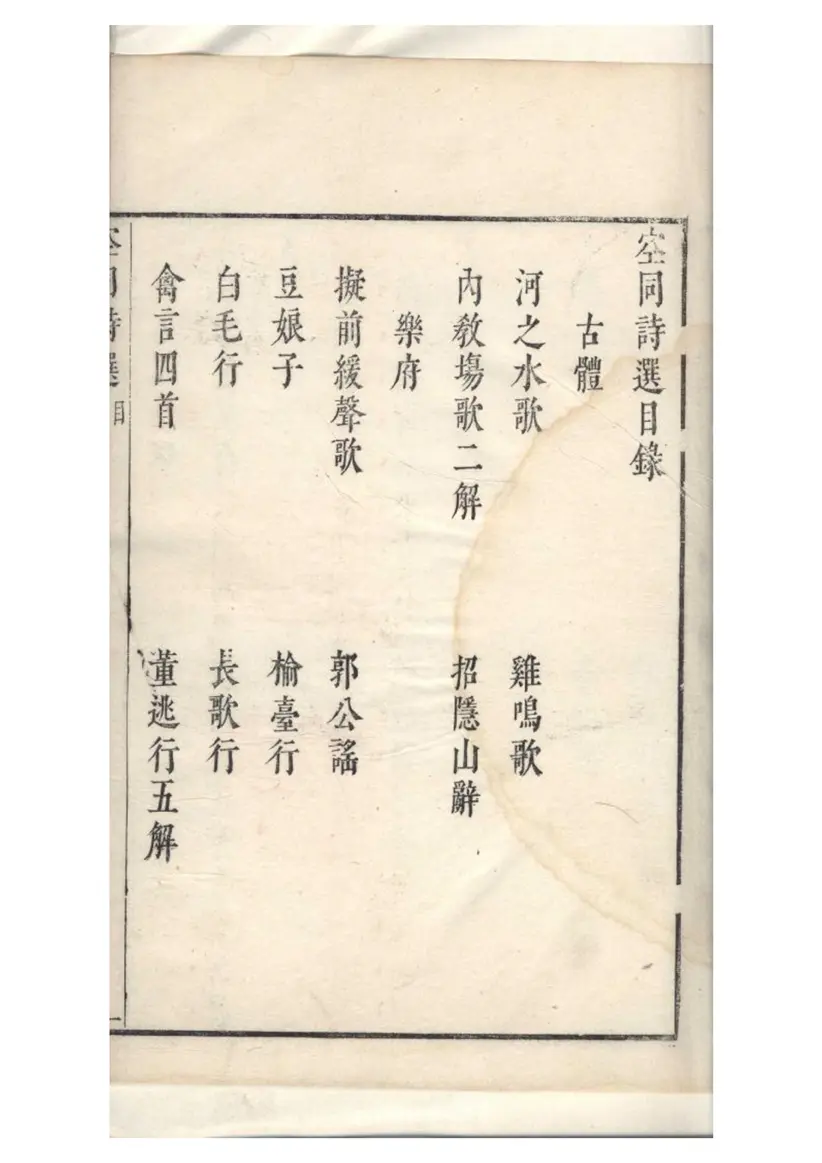 空同詩選目錄
古體
河之水歌　雞鳴歌
內教塲歌二解　招隱山辭
樂府
擬前緩聲歌　郭公謠
豆娘子　榆臺行
白毛行　長歌行
禽言四首　董逃行五解
空同詩選　目　一